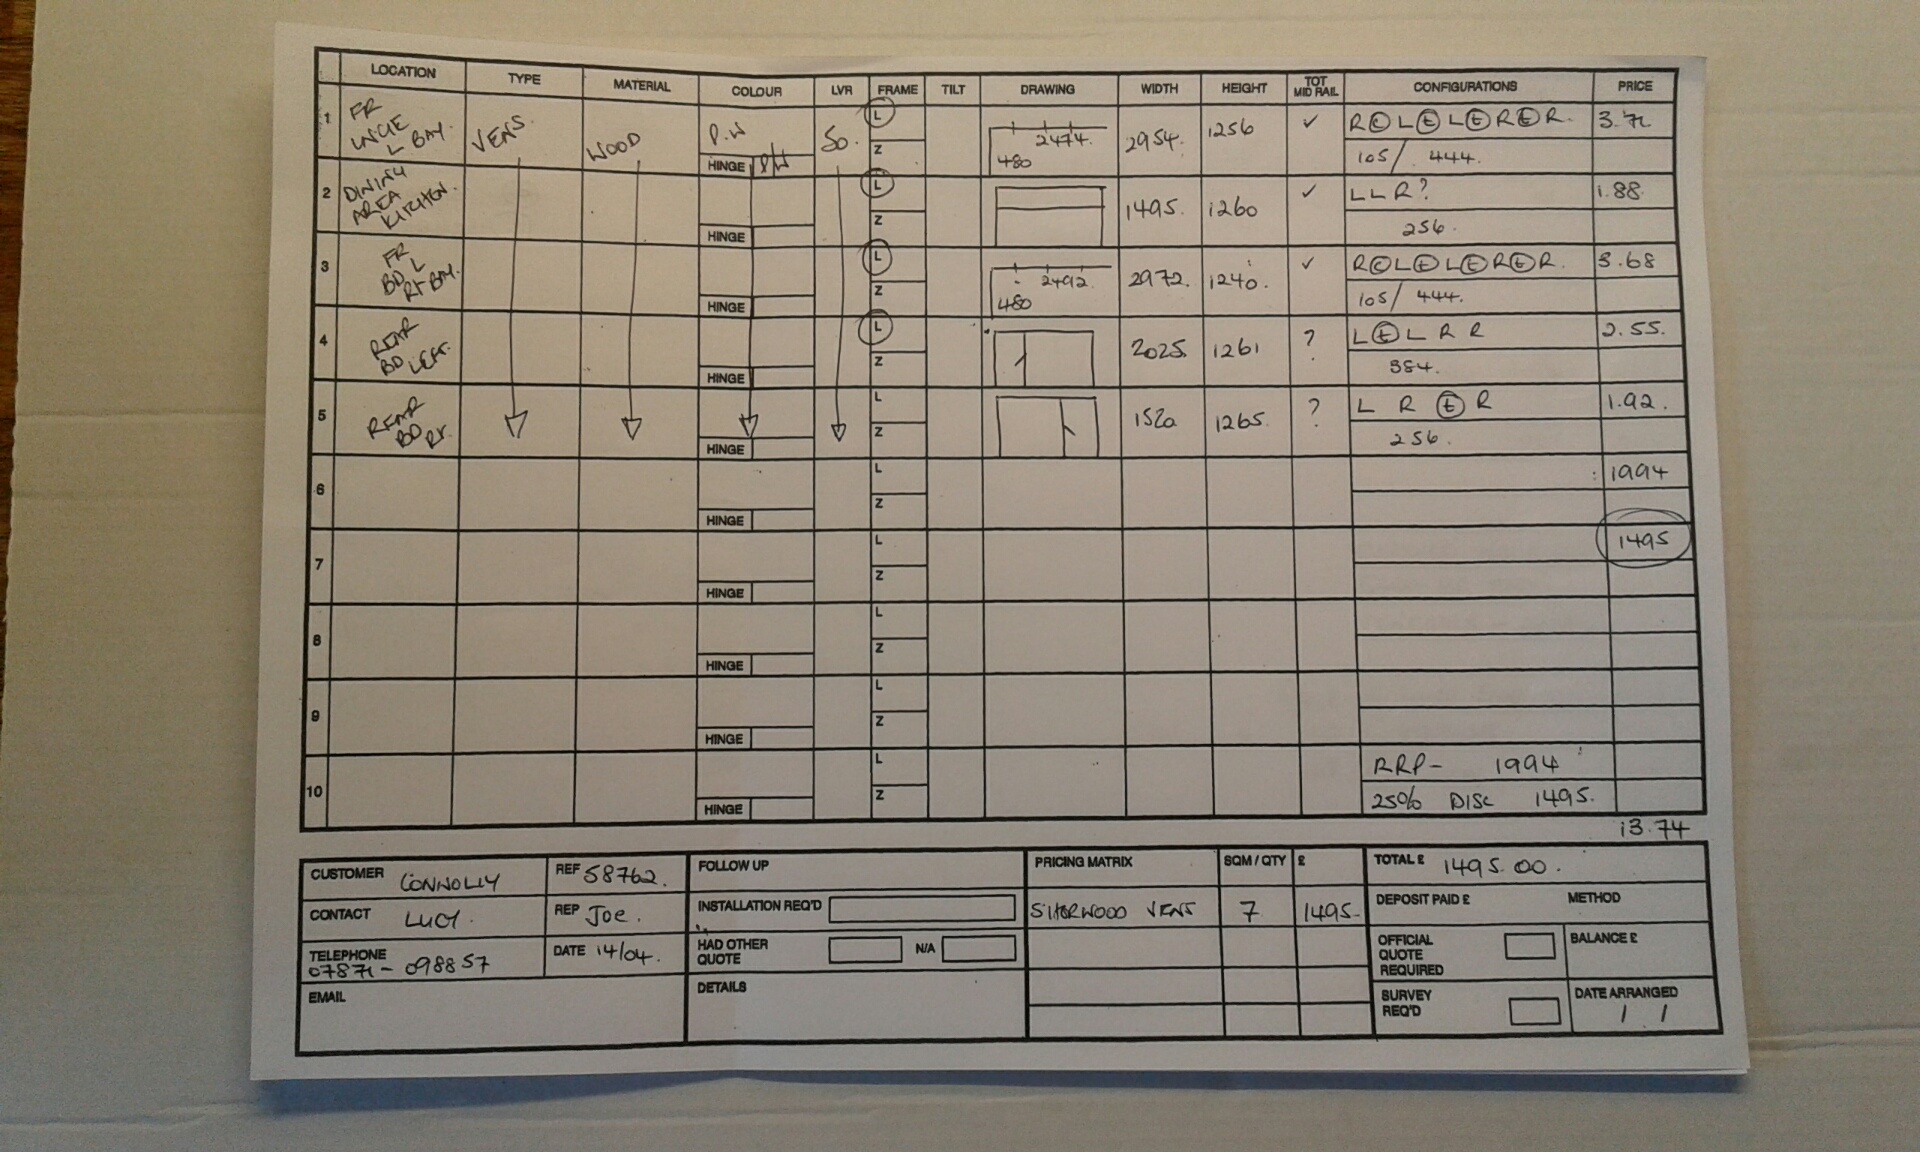 LOCATION TYPE MATERIAL COLOUR LVR FRAME TILT DRAWING WIDTH HEIGHT TOT MID RAIL CONFIGURATIONS PRICE
1 FR L BAY. VENS. WOOD P.W HINGE 50. L Z 2474. 480 2954. 1256 ✓ R C L E L E R E R. 3.71
105/ 444.
2 DINING AREA KITCHEN. HINGE L Z 1495. 1260 ✓ L L R? 1.88
256.
3 FR BD L RT BAY. HINGE L Z 2492. 480 2972. 1240. ✓ R C L E L E R E R. 3.68
105/ 444.
4 REAR BD LEFT. HINGE L Z 2025. 1261 ? L E L R R 2.55.
384.
5 REAR BD RT. HINGE L Z 1520 1265. ? L R E R 1.92.
256.
6 HINGE L Z 1994
7 HINGE L Z 1495
8 HINGE L Z
9 HINGE L Z
10 HINGE L Z RRP- 1994
25% DISC 1495.
13.74
CUSTOMER CONNOLLY REF 58762. FOLLOW UP PRICING MATRIX SQM / QTY £ TOTAL £ 1495.00.
CONTACT LUCY. REP JOE. INSTALLATION REQ'D VENS 7 1495- DEPOSIT PAID £ METHOD
TELEPHONE 07871-098857 DATE 14/04. HAD OTHER QUOTE N/A OFFICIAL QUOTE REQUIRED BALANCE £
EMAIL DETAILS SURVEY REQ'D DATE ARRANGED / /